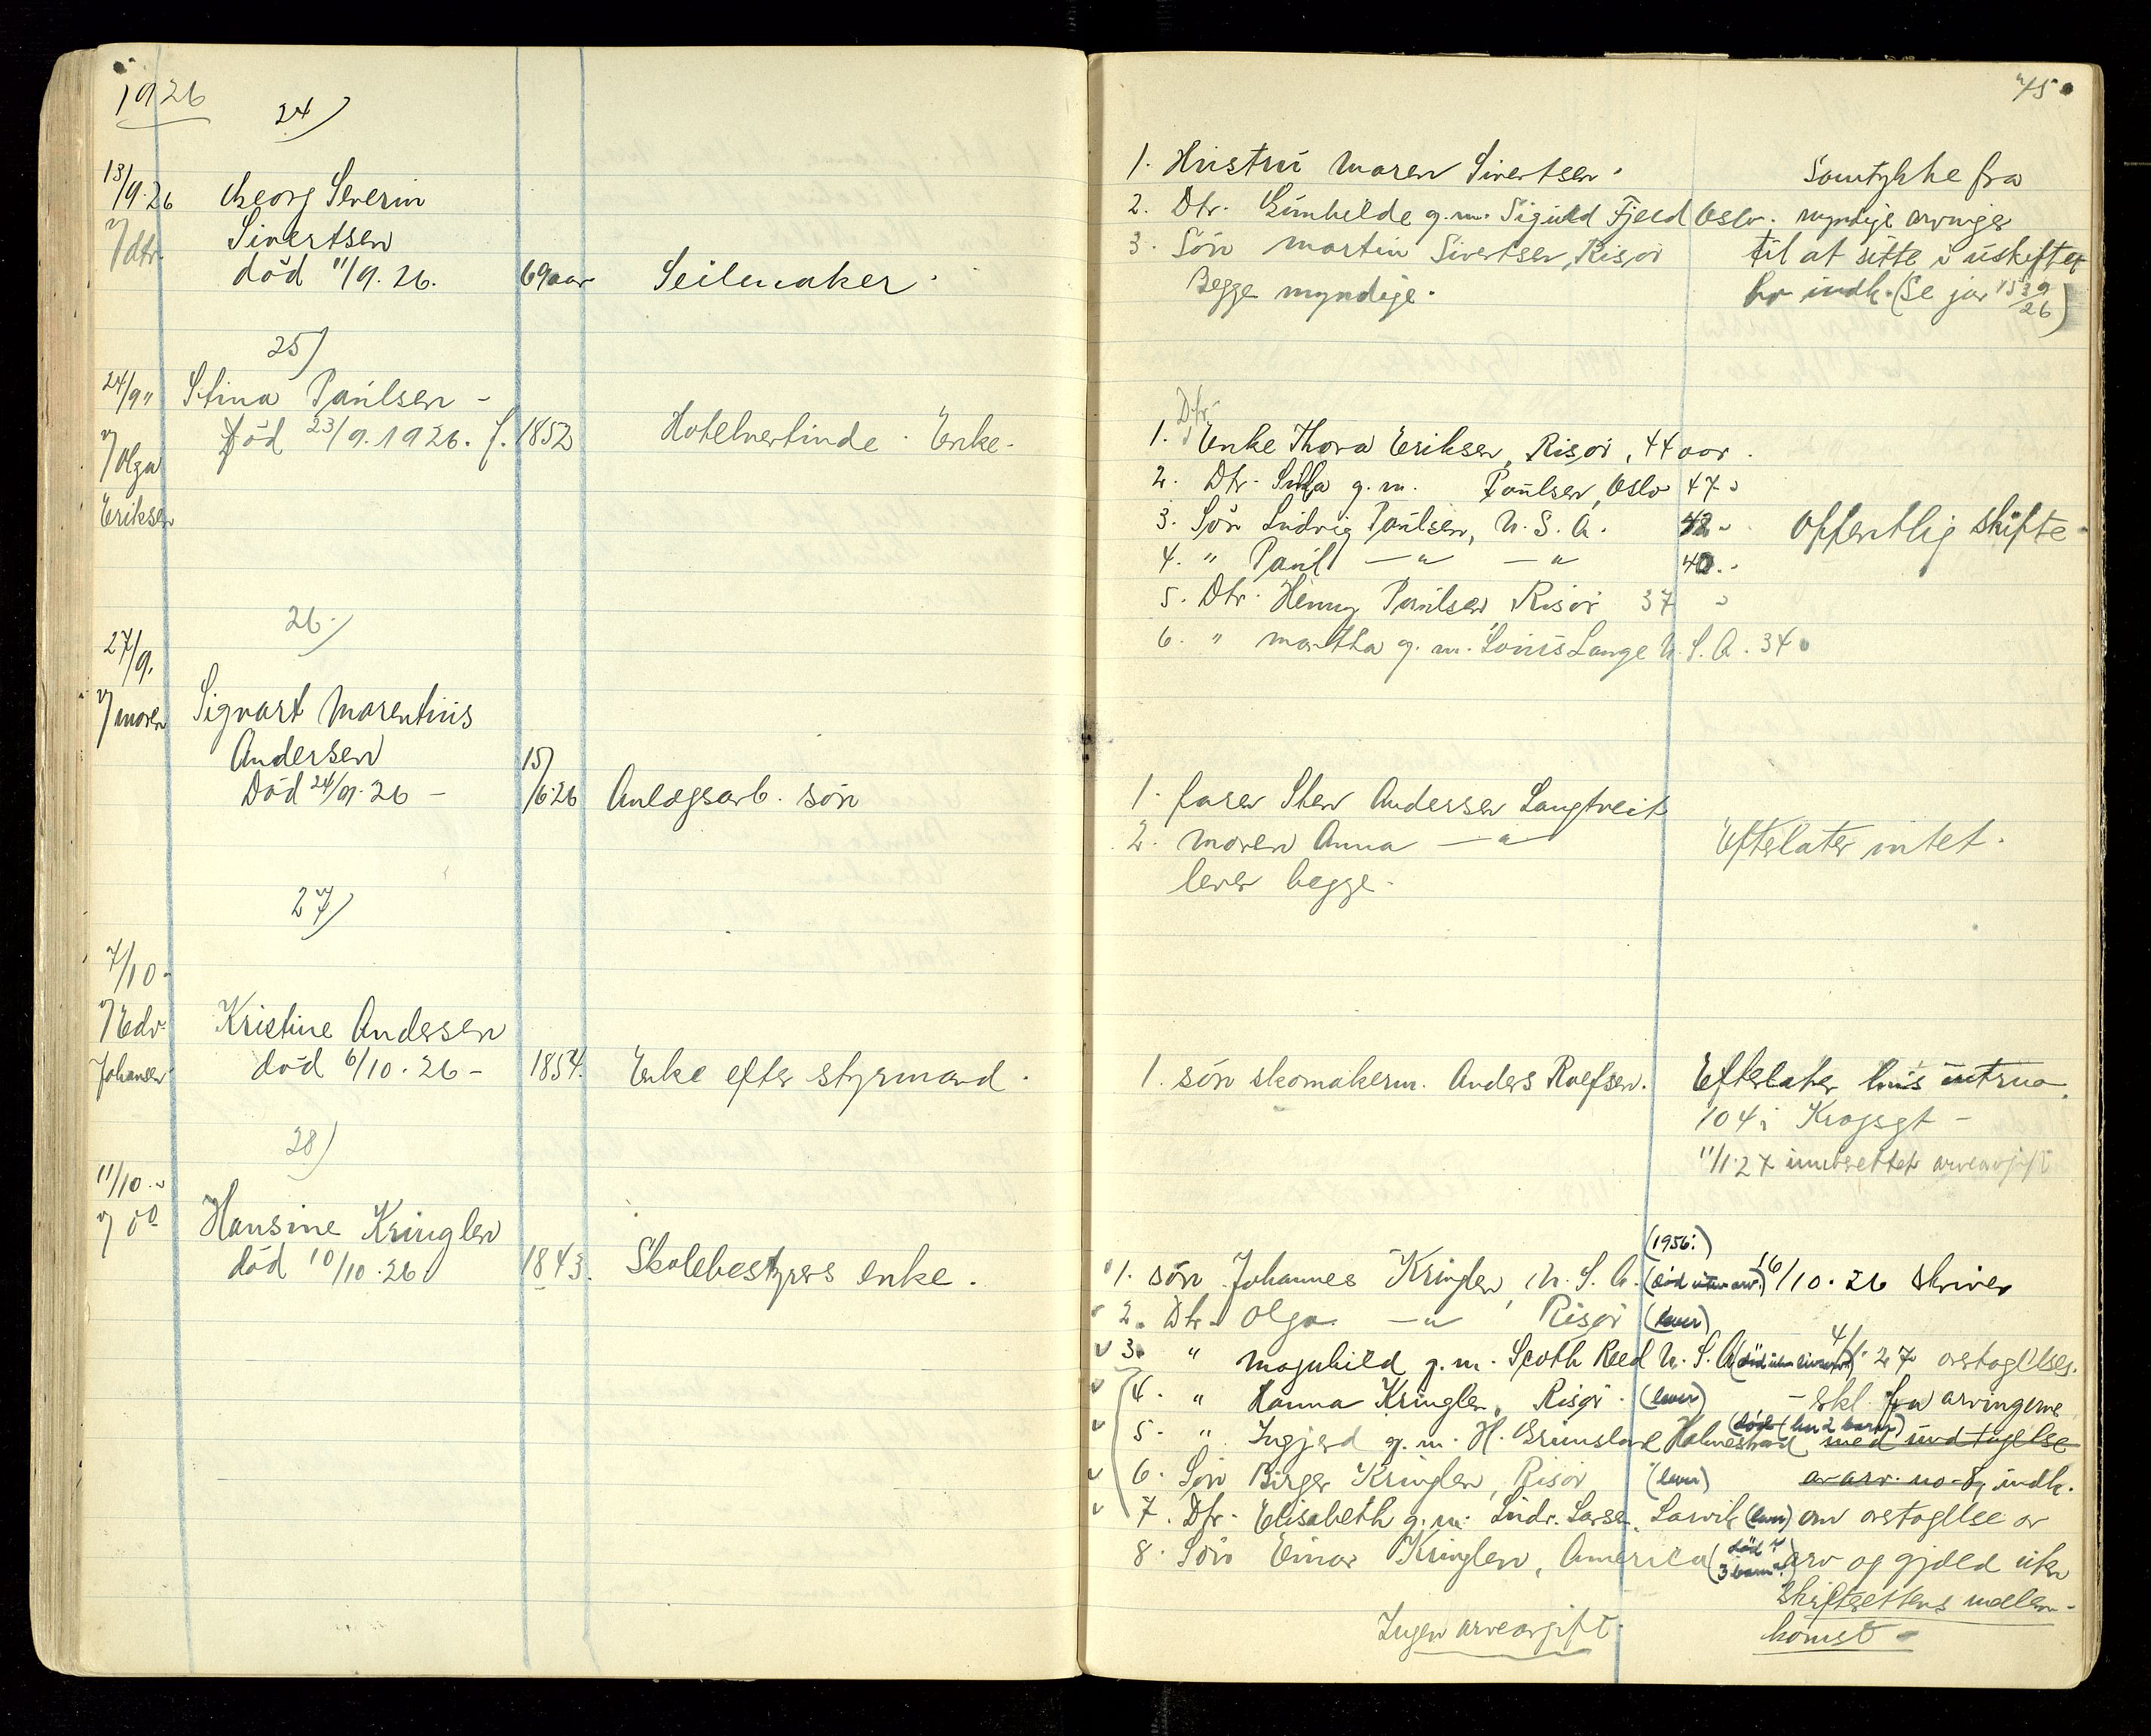 1926
24)
13/9.26 Georg Severin
v/dtr. Sivertsen
död 11/9.26. 69 aar Seilmaker.
25)
24/9 " Stina Paulsen -
v/Olga Död 23/9.1926. f. 1852 Hotelvertinde. Enke.
Eriksen
26.)
27/9.
v/moren Sigvart Marentius
Andersen 15/
Död 24/9.26 - /6.26 Anlægsarb. søn
27)
7/10-
v/Edv. Kristine Andersen
Johansen död 6/10.26 - 1854. Enke efter styrmand.
28)
11/10.
v/ Hansine Kringlen
död 10/10.26. 1843. Skolebestyrers enke.
45
1. Hustru Maren Sivertsen. Samtykke fra
2. Dtr. Gunhilde g.m. Sigurd Fjeld Oslo. myndige arvinger
3. Søn Martin Sivertsen, Risør til at sitte i uskiftet
Begge myndige. bo indk. (Se jar 1539/26)
Dtr.
1. Enke Thora Eriksen, Risør, 44 aar.
2. Dtr. g.m. Paulsen, Oslo 47 "
3. Søn Ludvig Paulsen, U.S.A. 42 " Offentlig skifte
4. " Paul — " — " 40. "
5. Dtr. Henny Paulsen Risør 37 "
6. " Martha g.m. Louis Lange U.S.A. 34
1. faren Sten Andersen Langtveit
2. moren Anna — " — Efterlater intet.
lever begge.
1. søn skomakerm. Anders Roefsen. Efterlater hus
104 i Kragsgt -
11/1.27 innberettet arveavgift
(1956:)
1. søn Johannes Kringlen, U.S.A. (död uten arv.) 16/10.26 skriver
2. Dtr. Olga — " — Risør (lever)
3. " Magnhild g.m. Scoth Reed U.S.A. 4/1.27 overtagelses.
4. " Hanna Kringlen, Risør. (lever) - ekl fra arvingerne
5. " Ingjerd g.m. H. Grimsland Holmestrand (död (har 2 barn)) med undtagelse
6. Søn Birger Kringlen, Risør (lever) av arv. no. 8, indk.
7. Dtr. Elisabeth g.m. Ludv. Larsen, Larvik (lever) om overtagelse av
8. Søn Einar Kringlen, America (död 3 barn.) arv og gjæld uten
skifterettens mellem-
komst -
Ingen arveavgift.